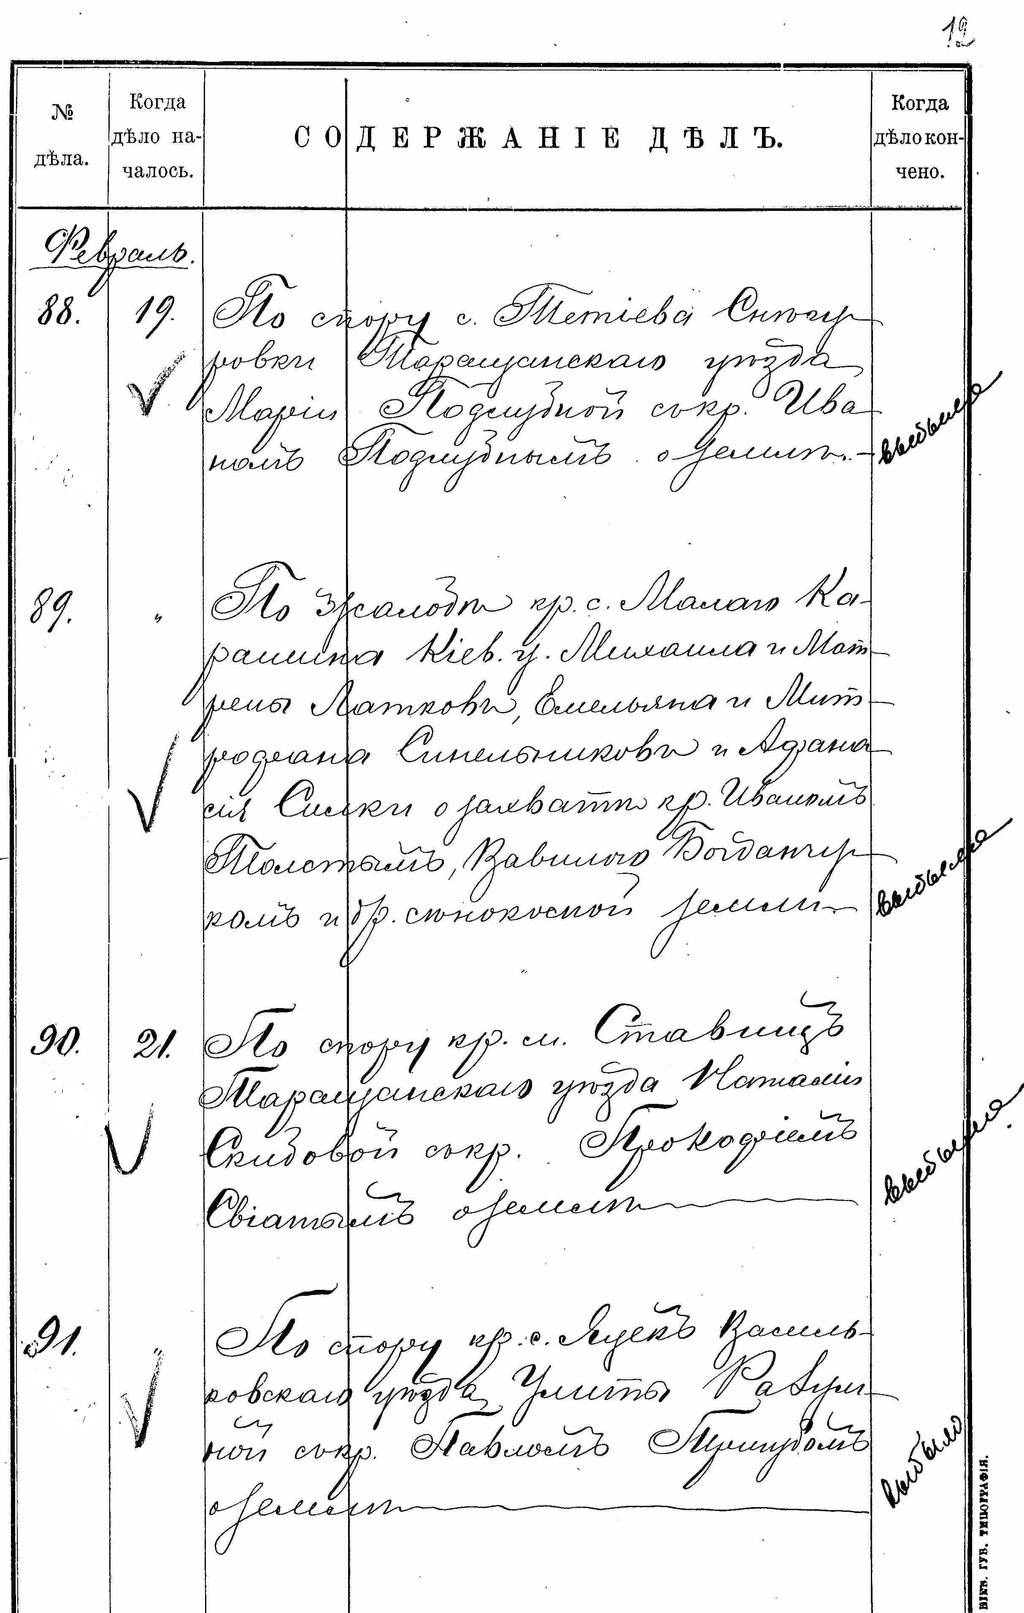 12
№ дѣла.
Когда дѣло на-
чалось.
СОДЕРЖАНІЕ ДѢЛЪ.
Когда дѣло кон-
чено.
Февраль.
88. 19. По спору с. Тетіева Снѣгу
ровки Таращанскаго уѣзда
Маріи Поддубной съ кр. Ива
номъ Поддубнымъ о землѣ.
выбыло
89. „ По жалобѣ кр. с. Малаго Ка-
рашина Кіев. у. Михаила и Мат
рены Латковъ, Емельяна и Мит
рофана Синельниковъ и Афана
сія Силки о захватѣ кр. Иваномъ
Толстымъ, Вавилою Богданчу
комъ и др. сѣнокосной земли
выбыло
90. 21. По спору кр. м. Ставищъ
Таращанскаго уѣзда Наталіи
Скибовой съ кр. Прокофіемъ
Свіатымъ о землѣ
выбыло
91. „ По спору кр. с. Яцекъ Василь-
ковскаго уѣзда Улиты
ной съ кр. Павломъ
о землѣ
выбыло
КІЕВ. ГУБ. ТИПОГРАФІЯ.